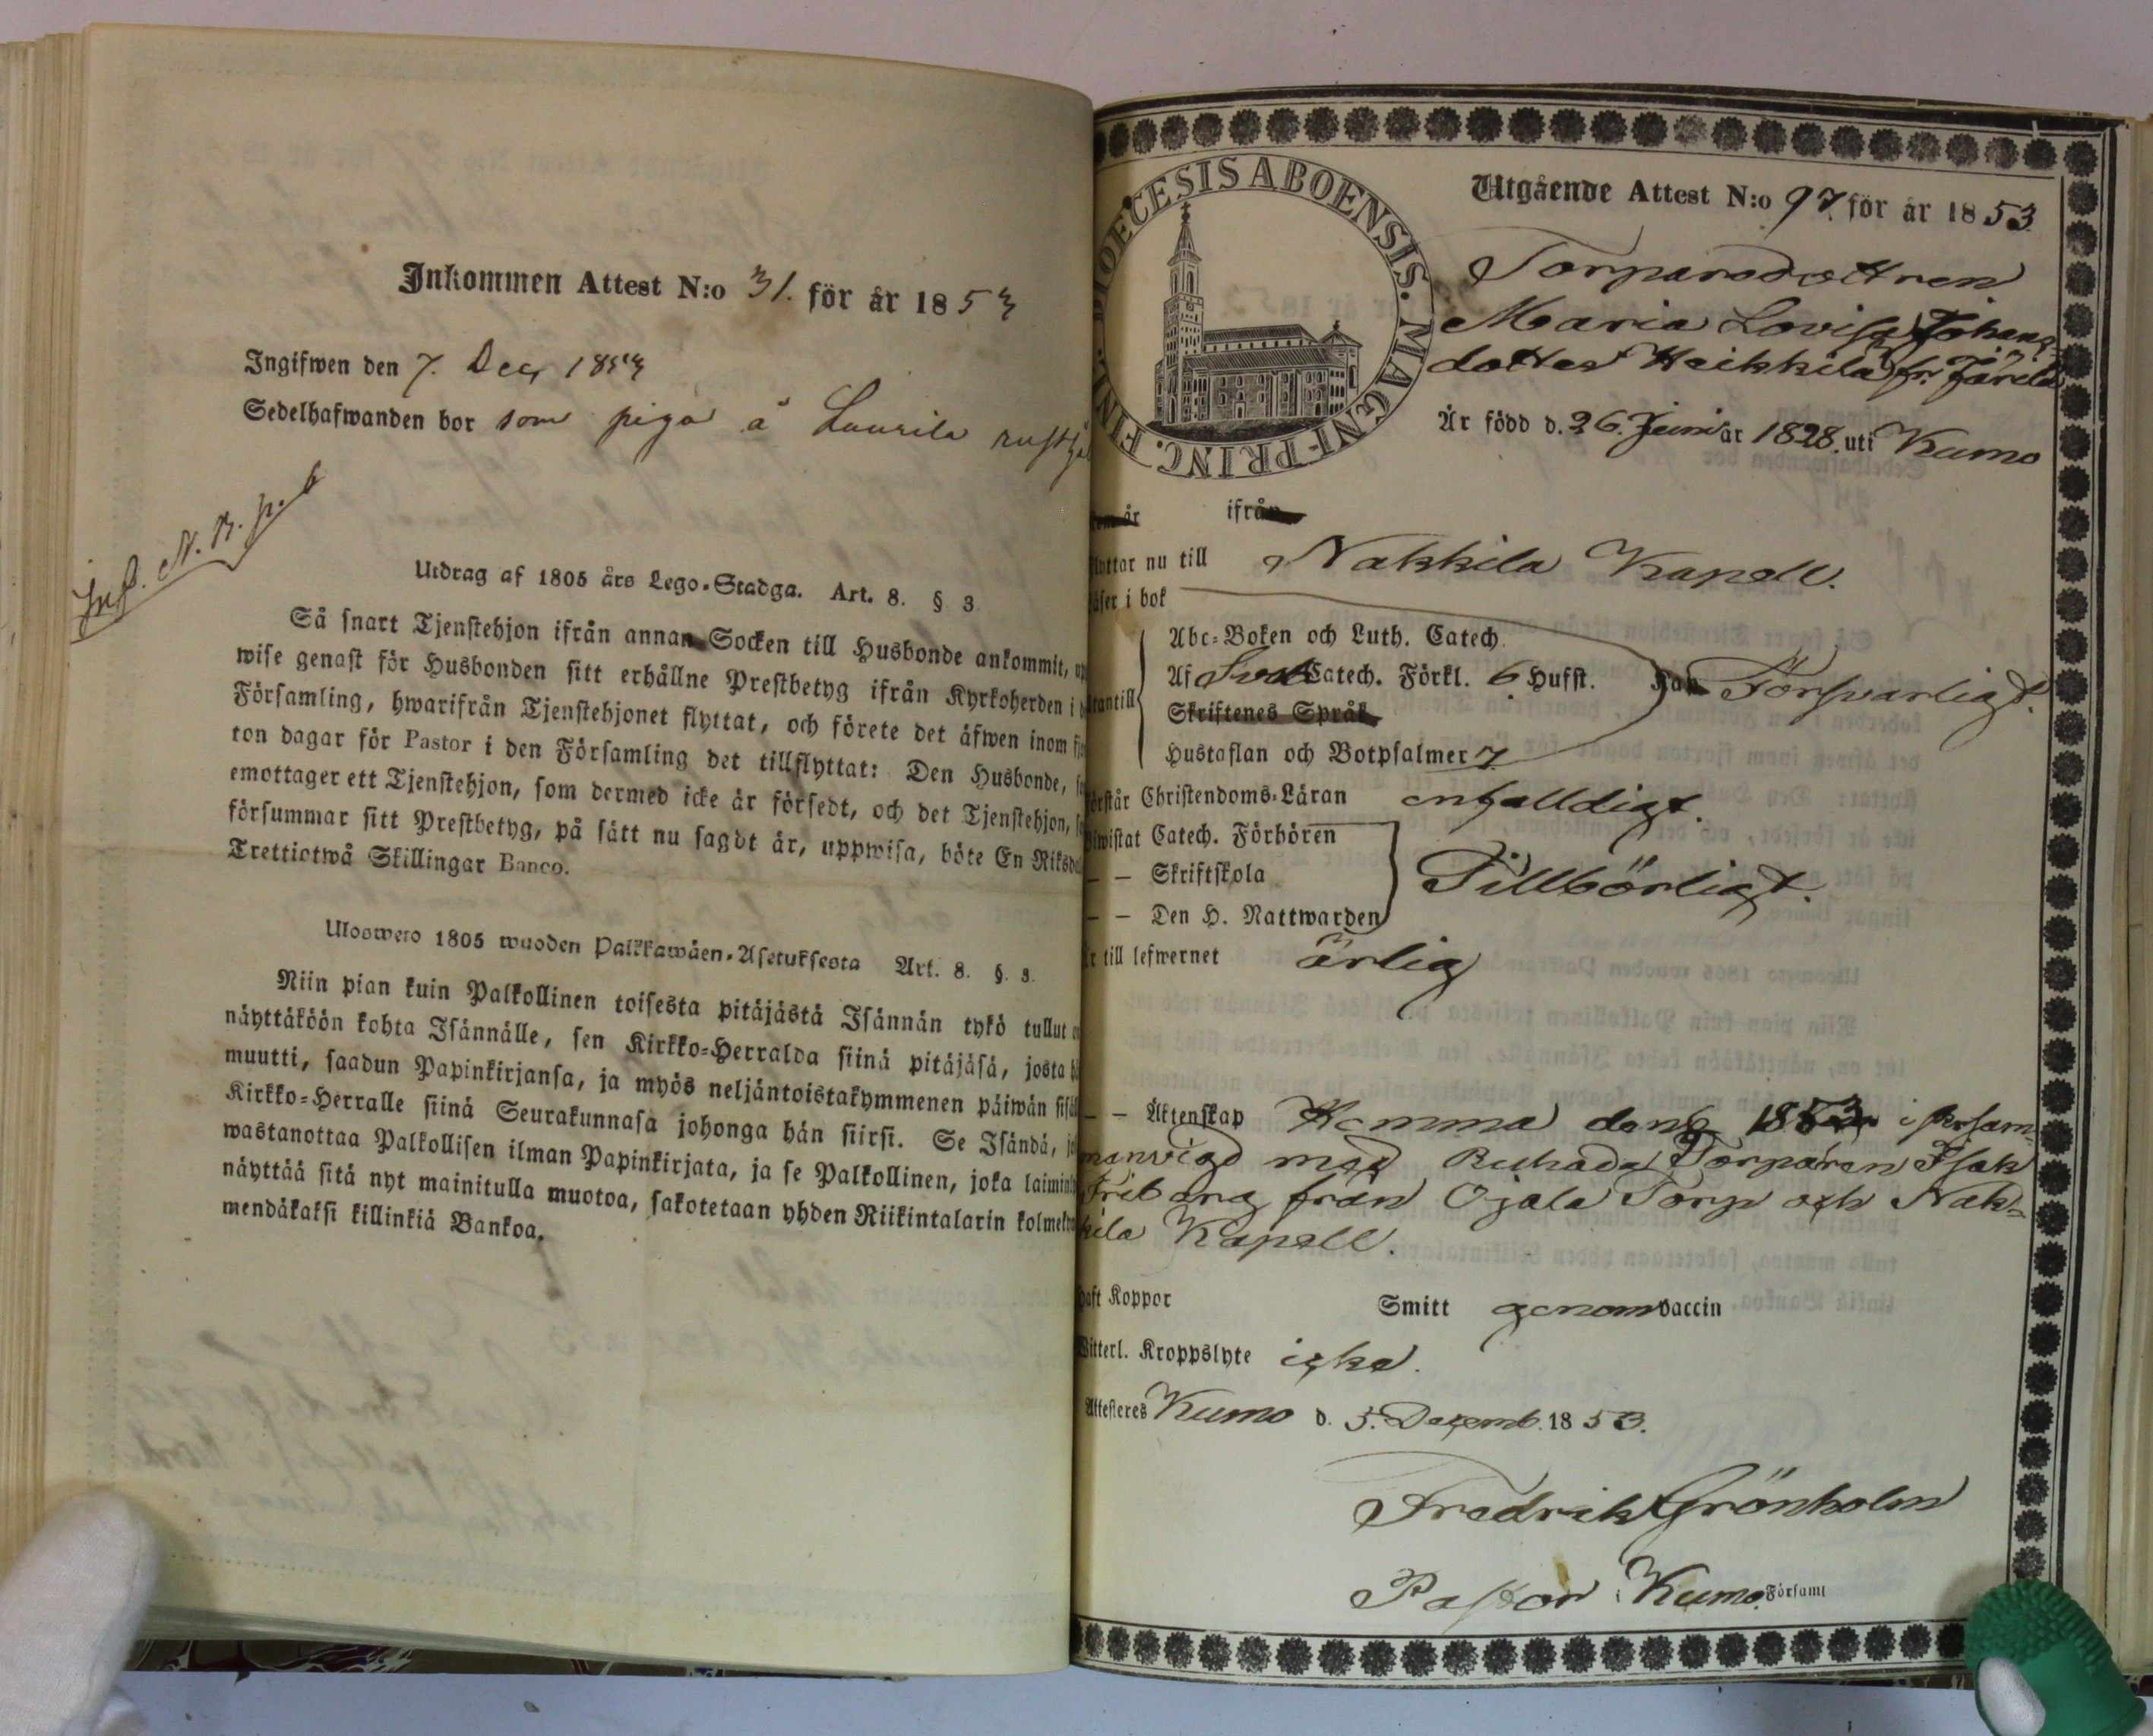 Inkommen Attest N:o 31. för år 1853
Ingifwen den 7. Dec 1853
Sedelhafwanden bor som piga å Laurila
Inf. N. B. p. 6
Utdrag af 1805 års Lego-Stadga. Art. 8. § 3
Så snart Tjenstehjon ifrån annan Socken till Husbonde ankommit,
wise genast för Husbonden sitt erhållne Prestbetyg ifrån Kyrkoherden i
Församling, hwarifrån Tjenstehjonet flyttat, och förete det äfwen inom
ton dagar för Pastor i den Församling det tillflyttat: Den Husbonde,
emottager ett Tjenstehjon, som dermed icke är försedt, och det Tjenstehjon,
försummar sitt Prestbetyg, på sätt nu sagdt är, uppwisa, böte En Riksd
Trettiotwå Skillingar Banco.
Uloswero 1805 wuoden Palkkawäen-Asetuksesta Art. 8. §. 3.
Niin pian kuin Palkollinen toisesta pitäjästä Isännän tykö tullut
näyttäköön kohta Isännälle, sen Kirkko-Herralda siinä pitäjäsä, josta
muutti, saadun Papinkirjansa, ja myös neljäntoistakymmenen päiwän
Kirkko-Herralle siinä Seurakunnasa johonga hän siirsi. Se Isändä,
wastanottaa Palkollisen ilman Papinkirjata, ja se Palkollinen, joka laimin
näyttää sitä nyt mainitulla muotoa, sakotetaan yhden Riikintalarin kolme
mendäkaksi killinkiä Bankoa.
DIOECESIS ABOENSIS. MAGNI-PRINC. FINL.
Utgående Attest N:o 97 för år 1853.
Torparedottren
Maria Lovisa Johans
dotter Heikkilä fr. Järilä
Är född d. 26. Juni år 1828. uti Kumo
år ifrån
flyttar nu till Nakkila Kapell.
läser i bok
Abc-Boken och Luth. Catech.
utantill Af Sveb Catech. Förkl. 6 Hufst. Försvarligt.
Skriftenes Språk
Hustaflan och Botpsalmer 7.
förstår Christendoms-Läran enfalldigt.
Biwistat Catech. Förhören
— — Skriftskola Tillbörligt.
— — Den H. Nattwarden
är till lefwernet ärlig
— — Äktenskap Hemma den 6 1853 i församl
manvigd med Torparen Isak
från Ojala Torp och Nak-
kila Kapell.
haft Koppor Smitt genom vaccin
Witterl. Kroppslyte icke.
Attesteres Kumo d. 5. Decemb. 1853.
Fredrik Grönholm
Pastor i Kumo Församl